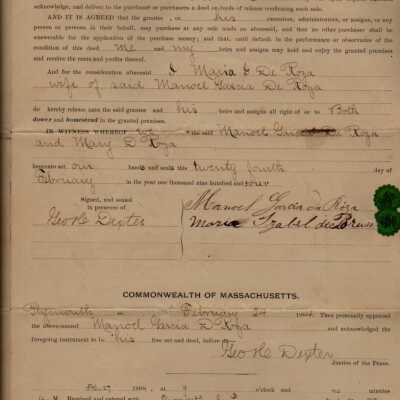 acknowledge, and deliver to the purchaser or purchasers a deed or deeds of release confirming such sale.
AND IT IS AGREED that the grantee , or his executors, administrators, or assigns, or any
person or persons in their behalf, may purchase at any sale made as aforesaid, and that no other purchaser shall be
answerable for the application of the purchase money; and that, until default in the performance or observance of the
condition of this deed me and my heirs and assigns may hold and enjoy the granted premises
and receive the rents and profits thereof.
And for the consideration aforesaid I Maria G De Roza
wife of said Manoel Garcia De Roza
do hereby release unto the said grantee and his heirs and assigns all right of or to Both
dower and homestead in the granted premises.
IN WITNESS WHEREOF we the said Manoel Roza
and Mary D Roza
hereunto set our hands and seals this twenty fourth day of
February in the year one thousand nine hundred and four
Signed, and sealed
in presence of
Geo H Dexter
Manoel Garcia da Roza
Maria Izabel
COMMONWEALTH OF MASSACHUSETTS.
Plymouth ss February 24 1904 Then personally appeared
the above-named Manoel Garcia D Roza and acknowledged the
foregoing instrument to be his free act and deed, before me
Geo H Dexter
Justice of the Peace.
190 , at 9 o'clock and minutes
M. Received and entered with